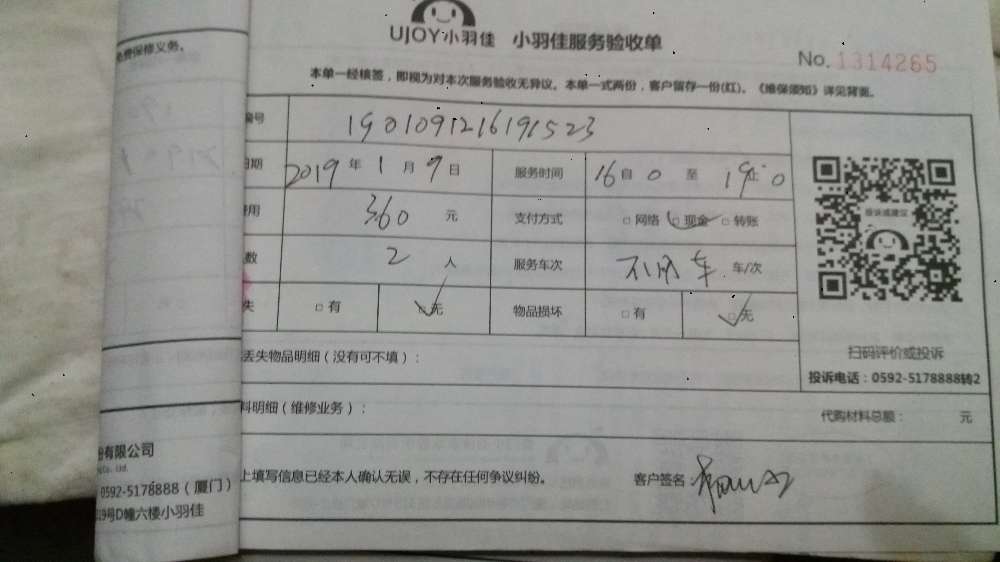 UJOY小羽佳 小羽佳服务验收单
No. 1314265
本单一经核签，即视为对本次服务验收无异议。本单一式两份，客户留存一份(红)。《维保须知》详见背面。
免费保修义务。
编号 1901091216191523
日期 2019年1月9日 服务时间 16自0至19止0
费用 360元 支付方式 □网络 □现金 □转账
数 2人 服务车次 车/次
失 □有 □无 物品损坏 □有 □无
投诉或建议
扫码评价或投诉
投诉电话：0592-5178888转2
丢失物品明细（没有可不填）：
料明细（维修业务）： 代购材料总额： 元
上填写信息已经本人确认无误，不存在任何争议纠纷。 客户签名：
份有限公司
Co., Ltd.
0592-5178888（厦门）
19号D幢六楼小羽佳